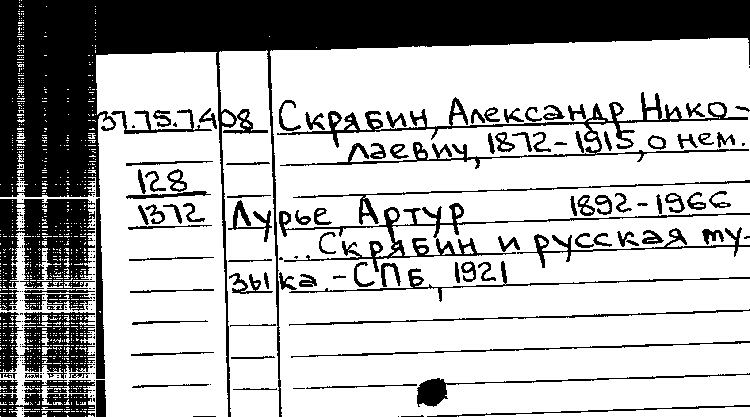 37.75.7.408 Скрябин, Александр Нико-
лаевич, 1872-1915, о нем.
128
1372 Лурье, Артур 1892-1966
... Скрябин и русская му-
зыка. - СПб, 1921